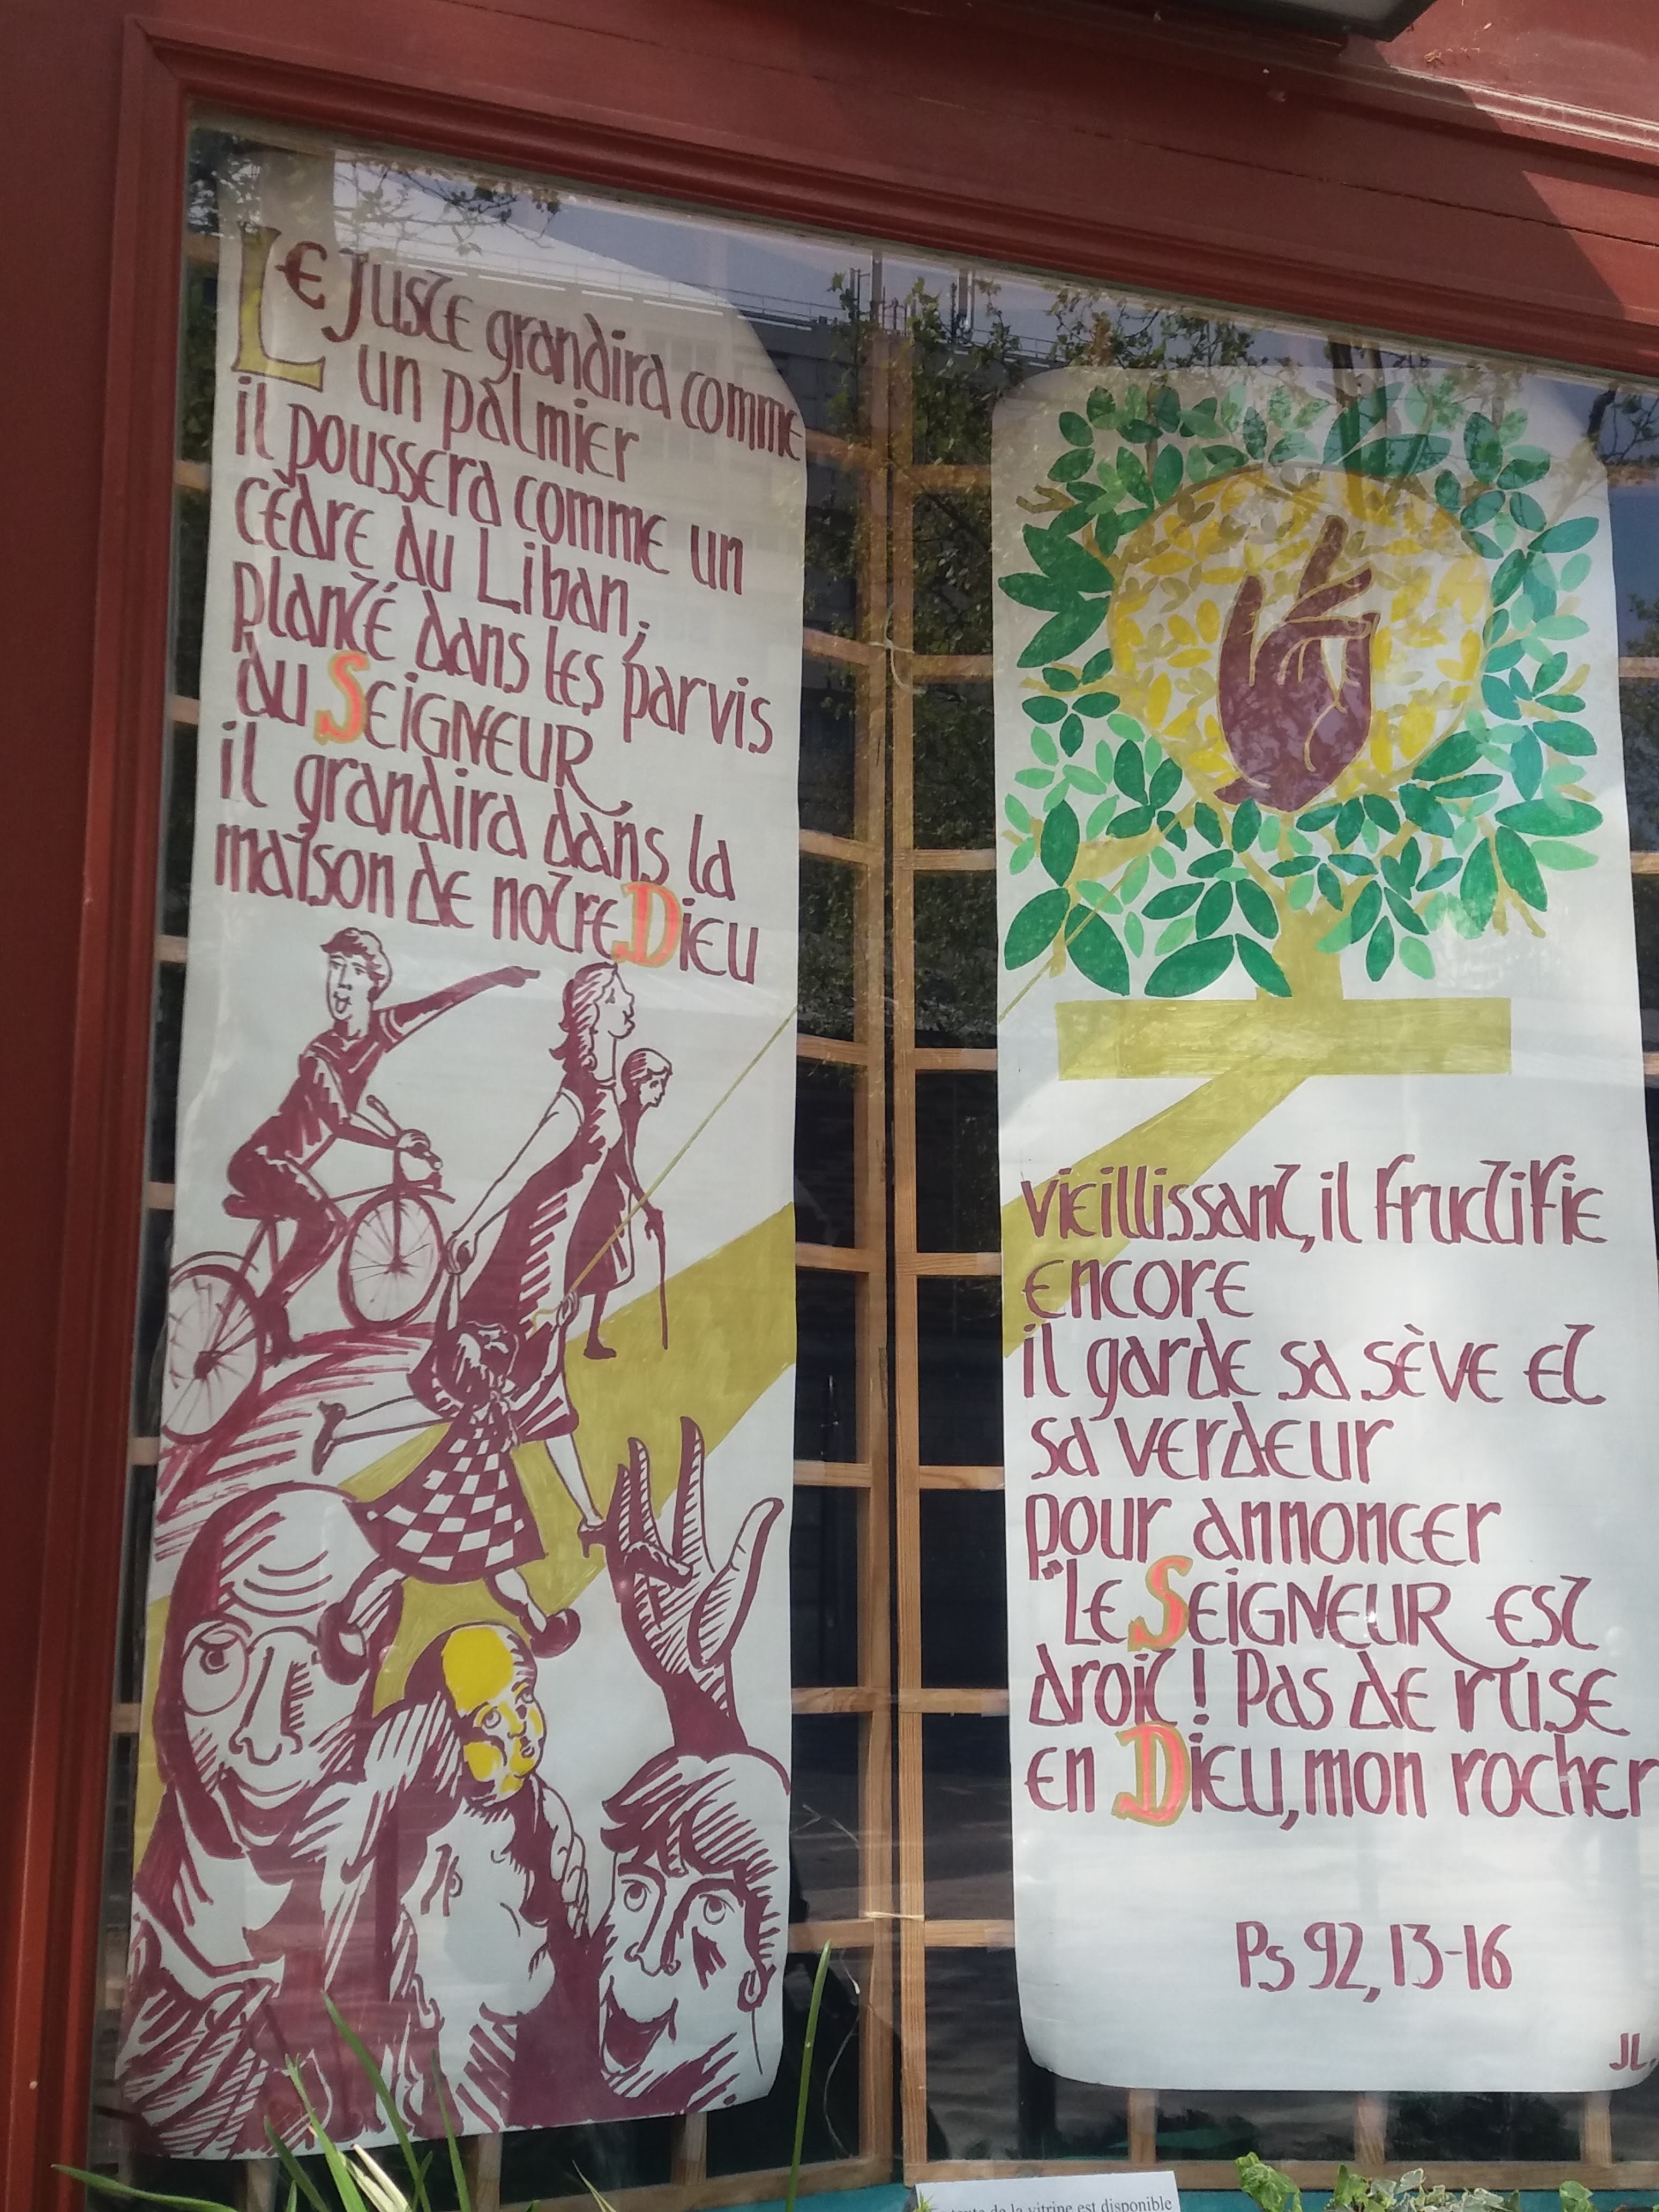 Le Juste grandira comme
un palmier
il poussera comme un
cèdre du Liban;
planté dans les parvis
du SEIGNEUR
il grandira dans la
maison de notre Dieu
vieillissant, il fructifie
encore
il garde sa sève et
sa verdeur
pour annoncer
"Le SEIGNEUR est
droit! Pas de ruse
en Dieu, mon rocher
Ps 92, 13-16
JL.
de la vitrine est disponible